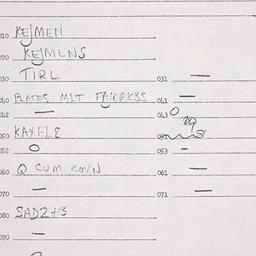 010 KEJMEN
020 KEJMENS
030 TIRL 031 —
040 PLATOS MIT FAJERKSS 041 —
042 — 043 O
050 KAXELE
052 O 053 -
060 Q CUM KOXN 061 —
070 — 071 —
080 SADZ+3
090 —